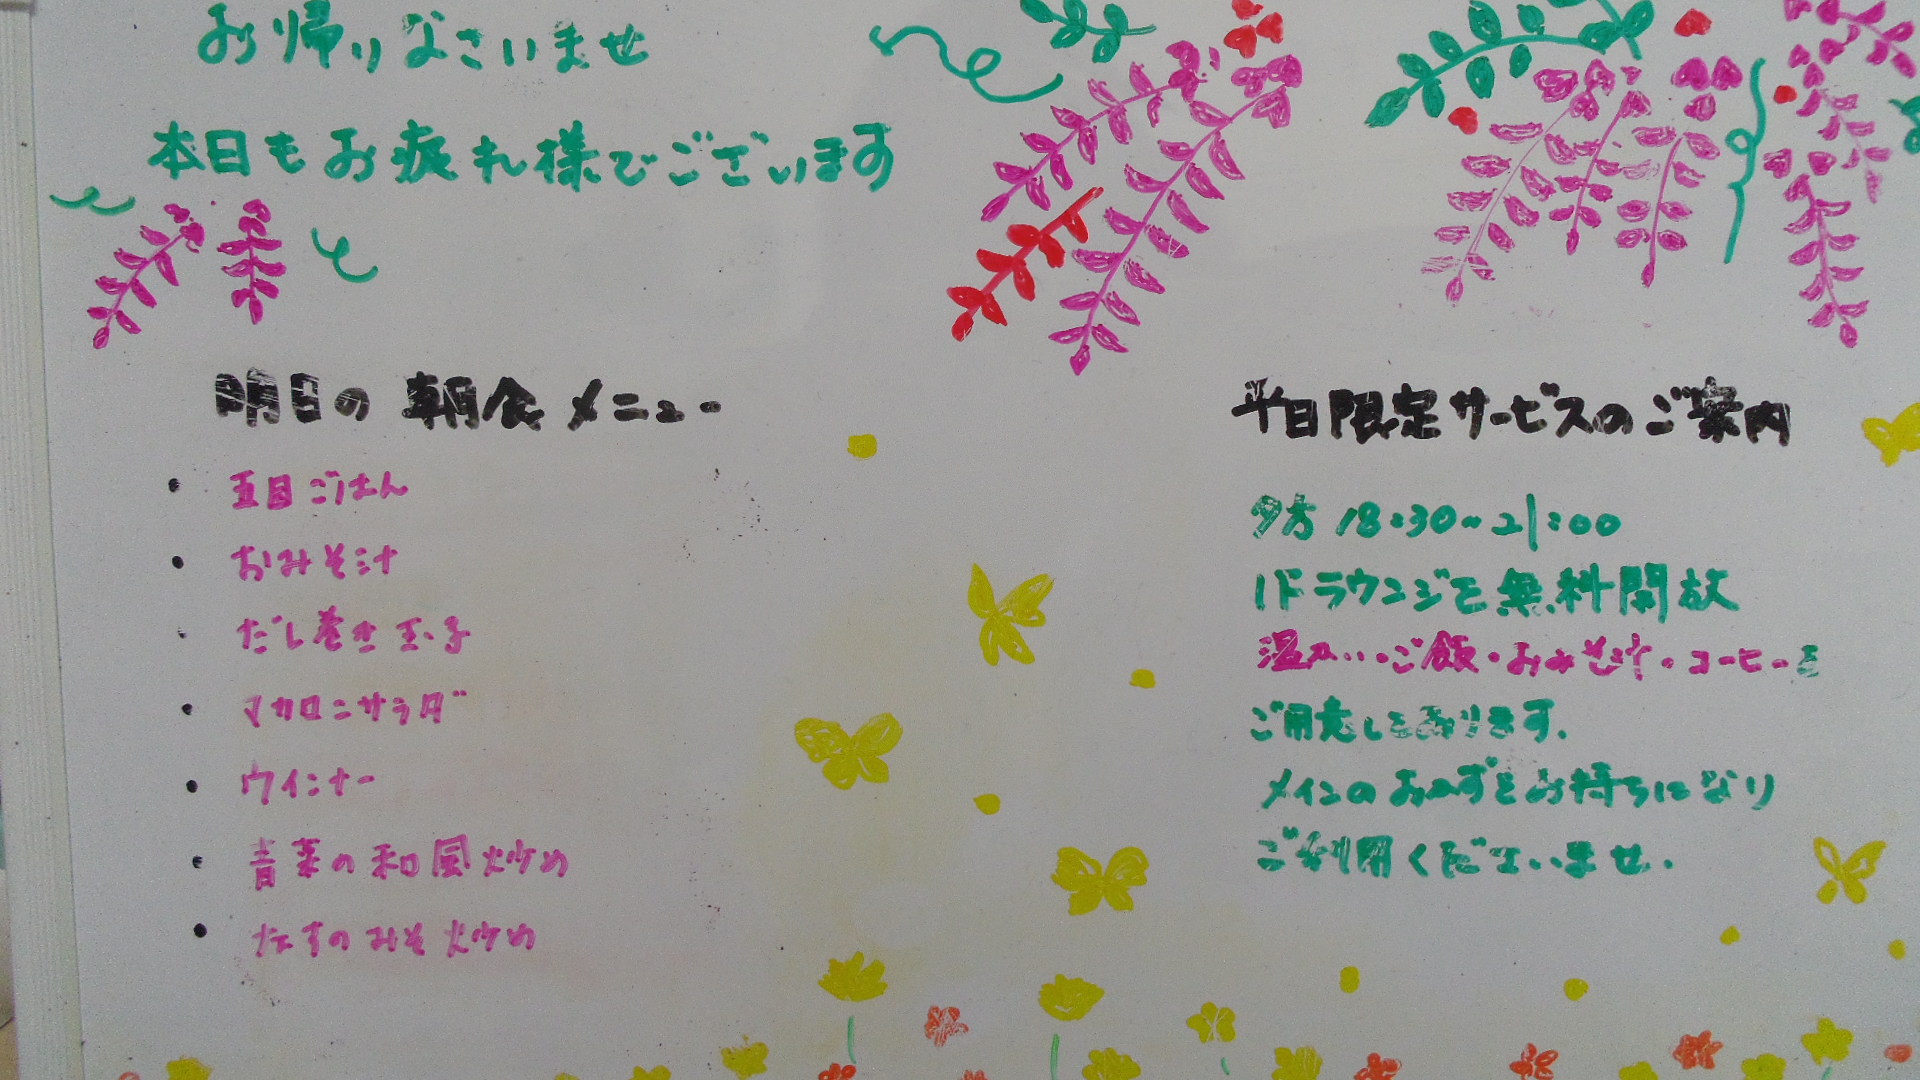 お帰りなさいませ
本日もお疲れ様でございます
明日の朝食メニュー
・五目ごはん
・おみそ汁
・だし巻き玉子
・マカロニサラダ
・ウインナー
・青菜の和風炒め
・なすのみそ炒め
平日限定サービスのご案内
夕方18:30~21:00
1Fラウンジを無料開放
温かい・ご飯・おみそ汁・コーヒーを
ご用意しております.
メインのおかずをお持ちになり
ご利用くださいませ.